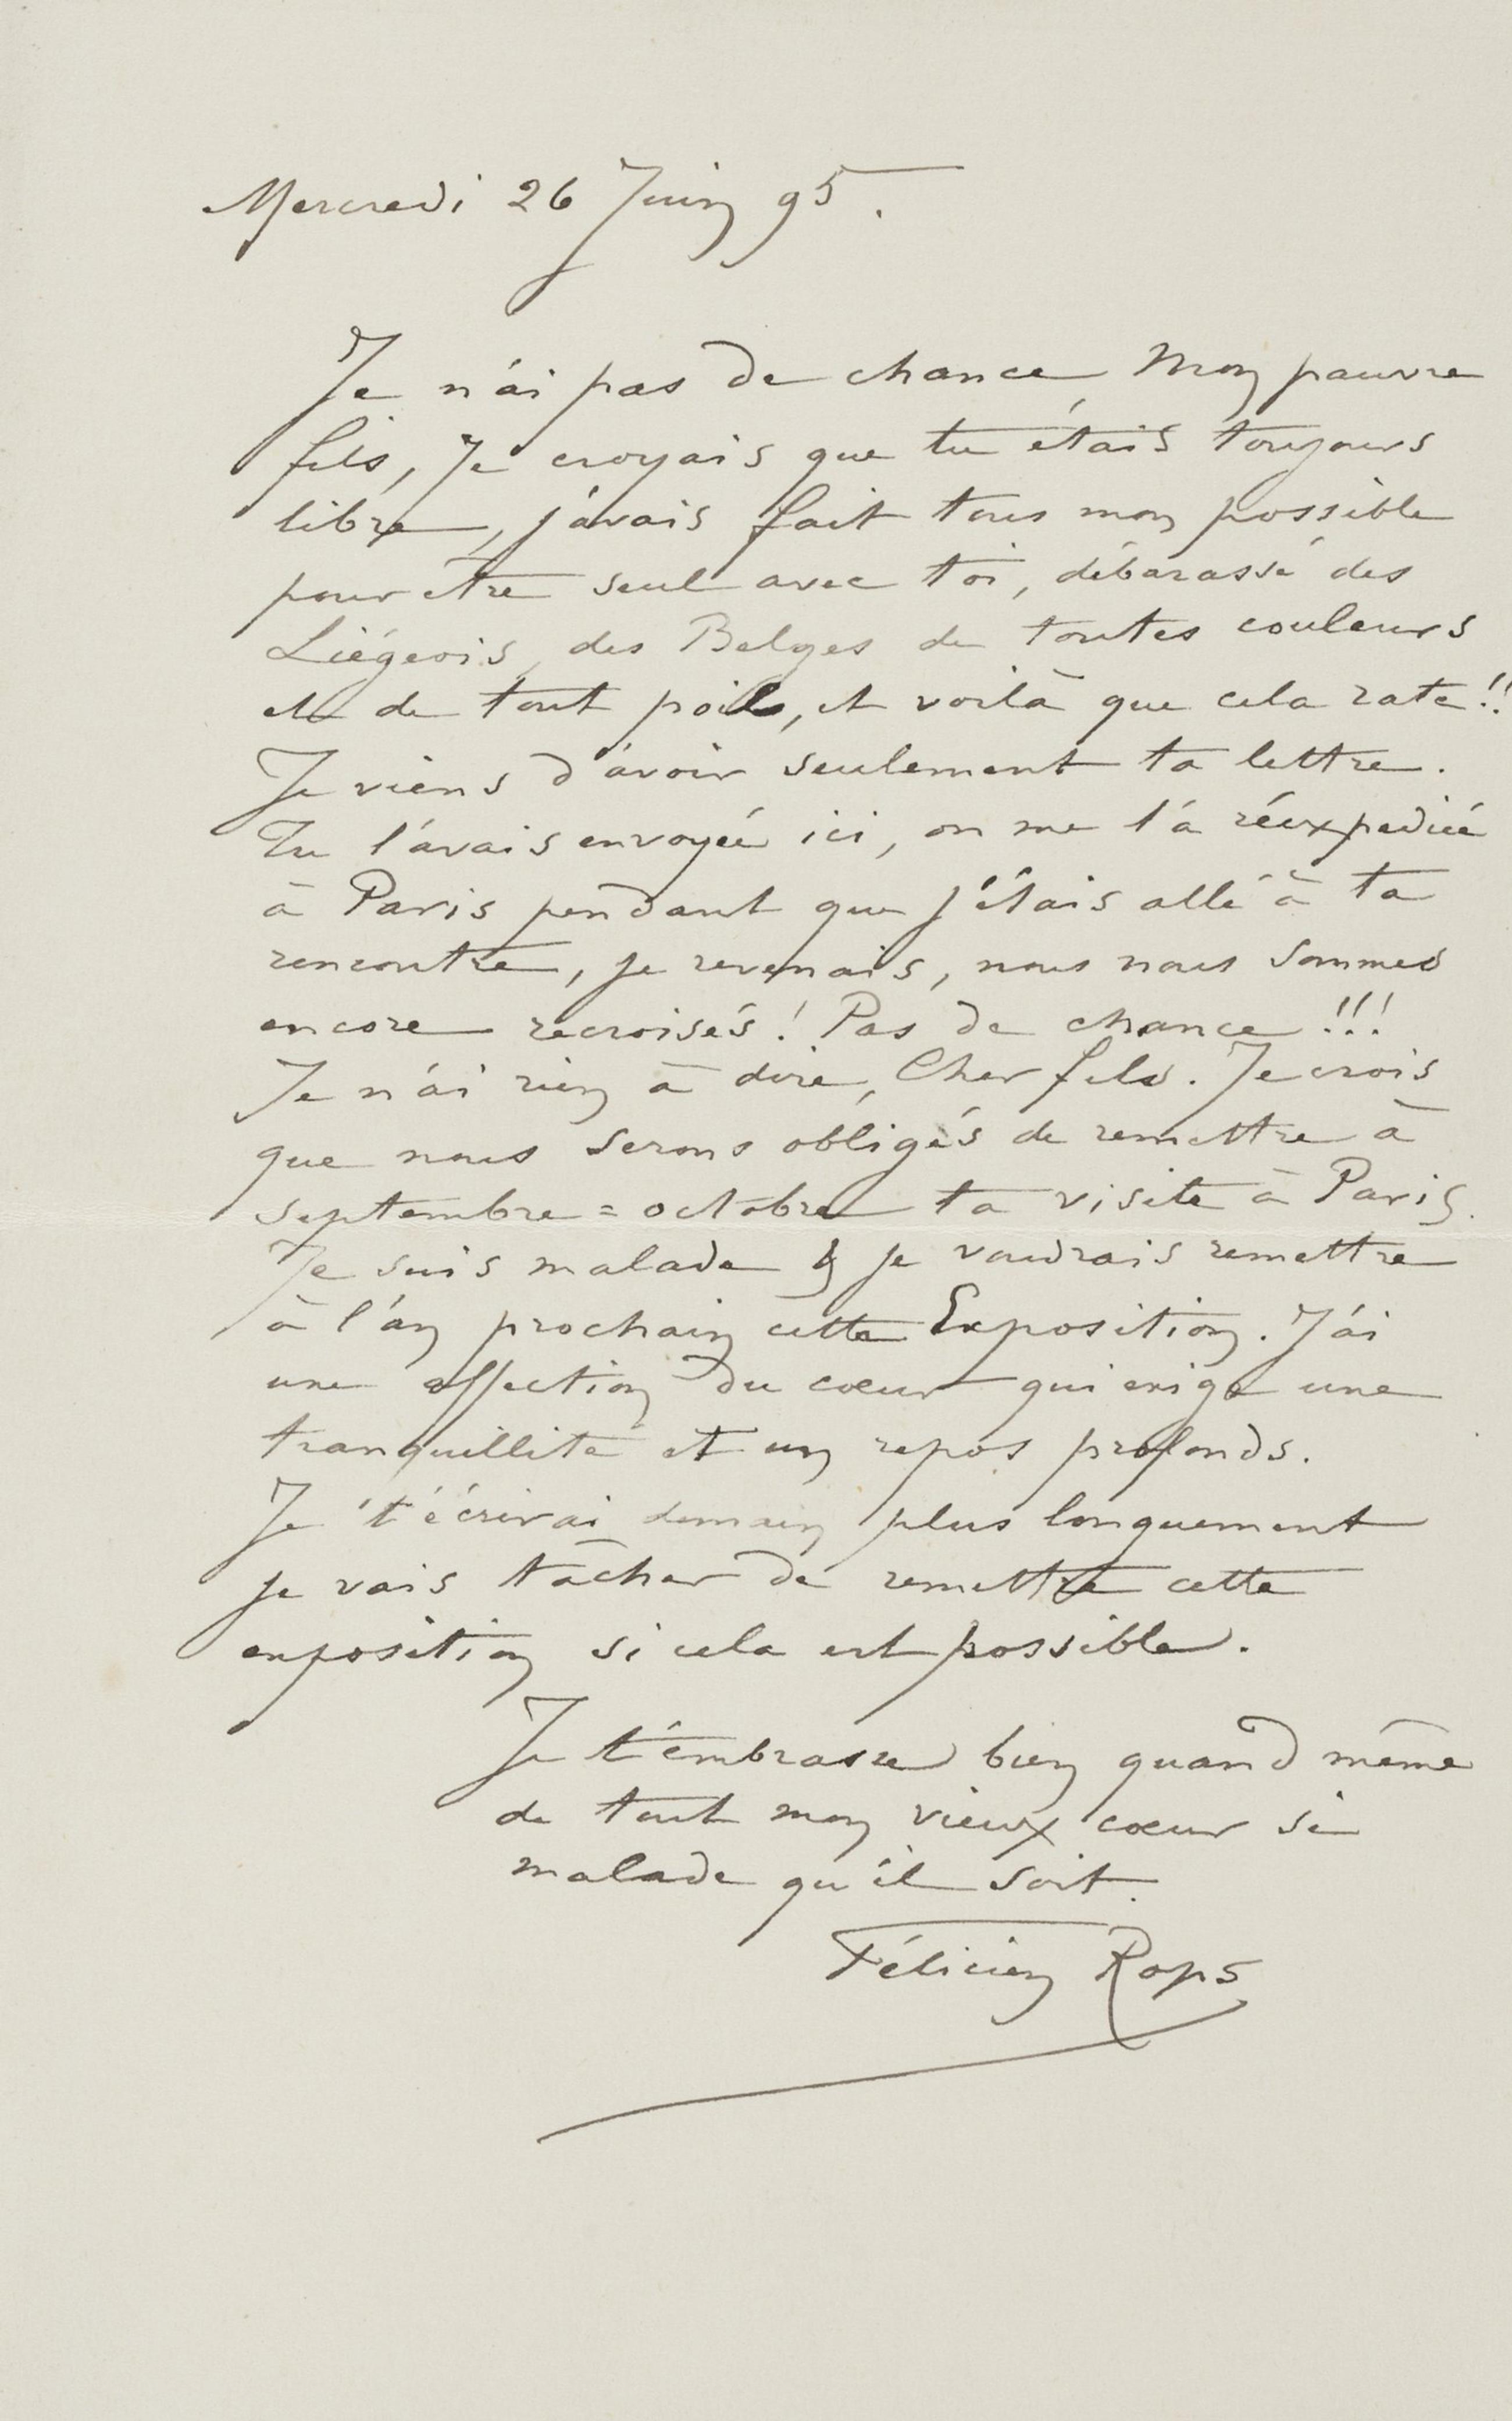 Mercredi 26 Juin 95.
Je n'ai pas de chance, Mon pauvre
fils, Je croyais que tu étais toujours
libre, j'avais fait tous mon possible
pour être seul avec toi, débarassé des
Liégeois, des Belges de toutes couleurs
et de tout poil, et voilà que cela rate!!
Je viens d'avoir seulement ta lettre.
Tu l'avais envoyée ici, on me l'a réexpediée
à Paris pendant que j'étais allé à ta
rencontre, je revenais, nous nous sommes
encore recroisés! Pas de chance!!!
Je n'ai rien à dire, Cher fils. Je crois
que nous serons obligés de remettre à
septembre = octobre ta visite à Paris.
Je suis malade & je voudrais remettre
à l'an prochain cette Exposition. J'ai
une affection du cœur qui exige une
tranquillité et un repos profonds.
Je t'écrirai demain plus longuement
je vais tâcher de remettre cette
exposition si cela est possible.
Je t'embrasse bien quand même
de tout mon vieux cœur si
malade qu'il soit.
Félicien Rops